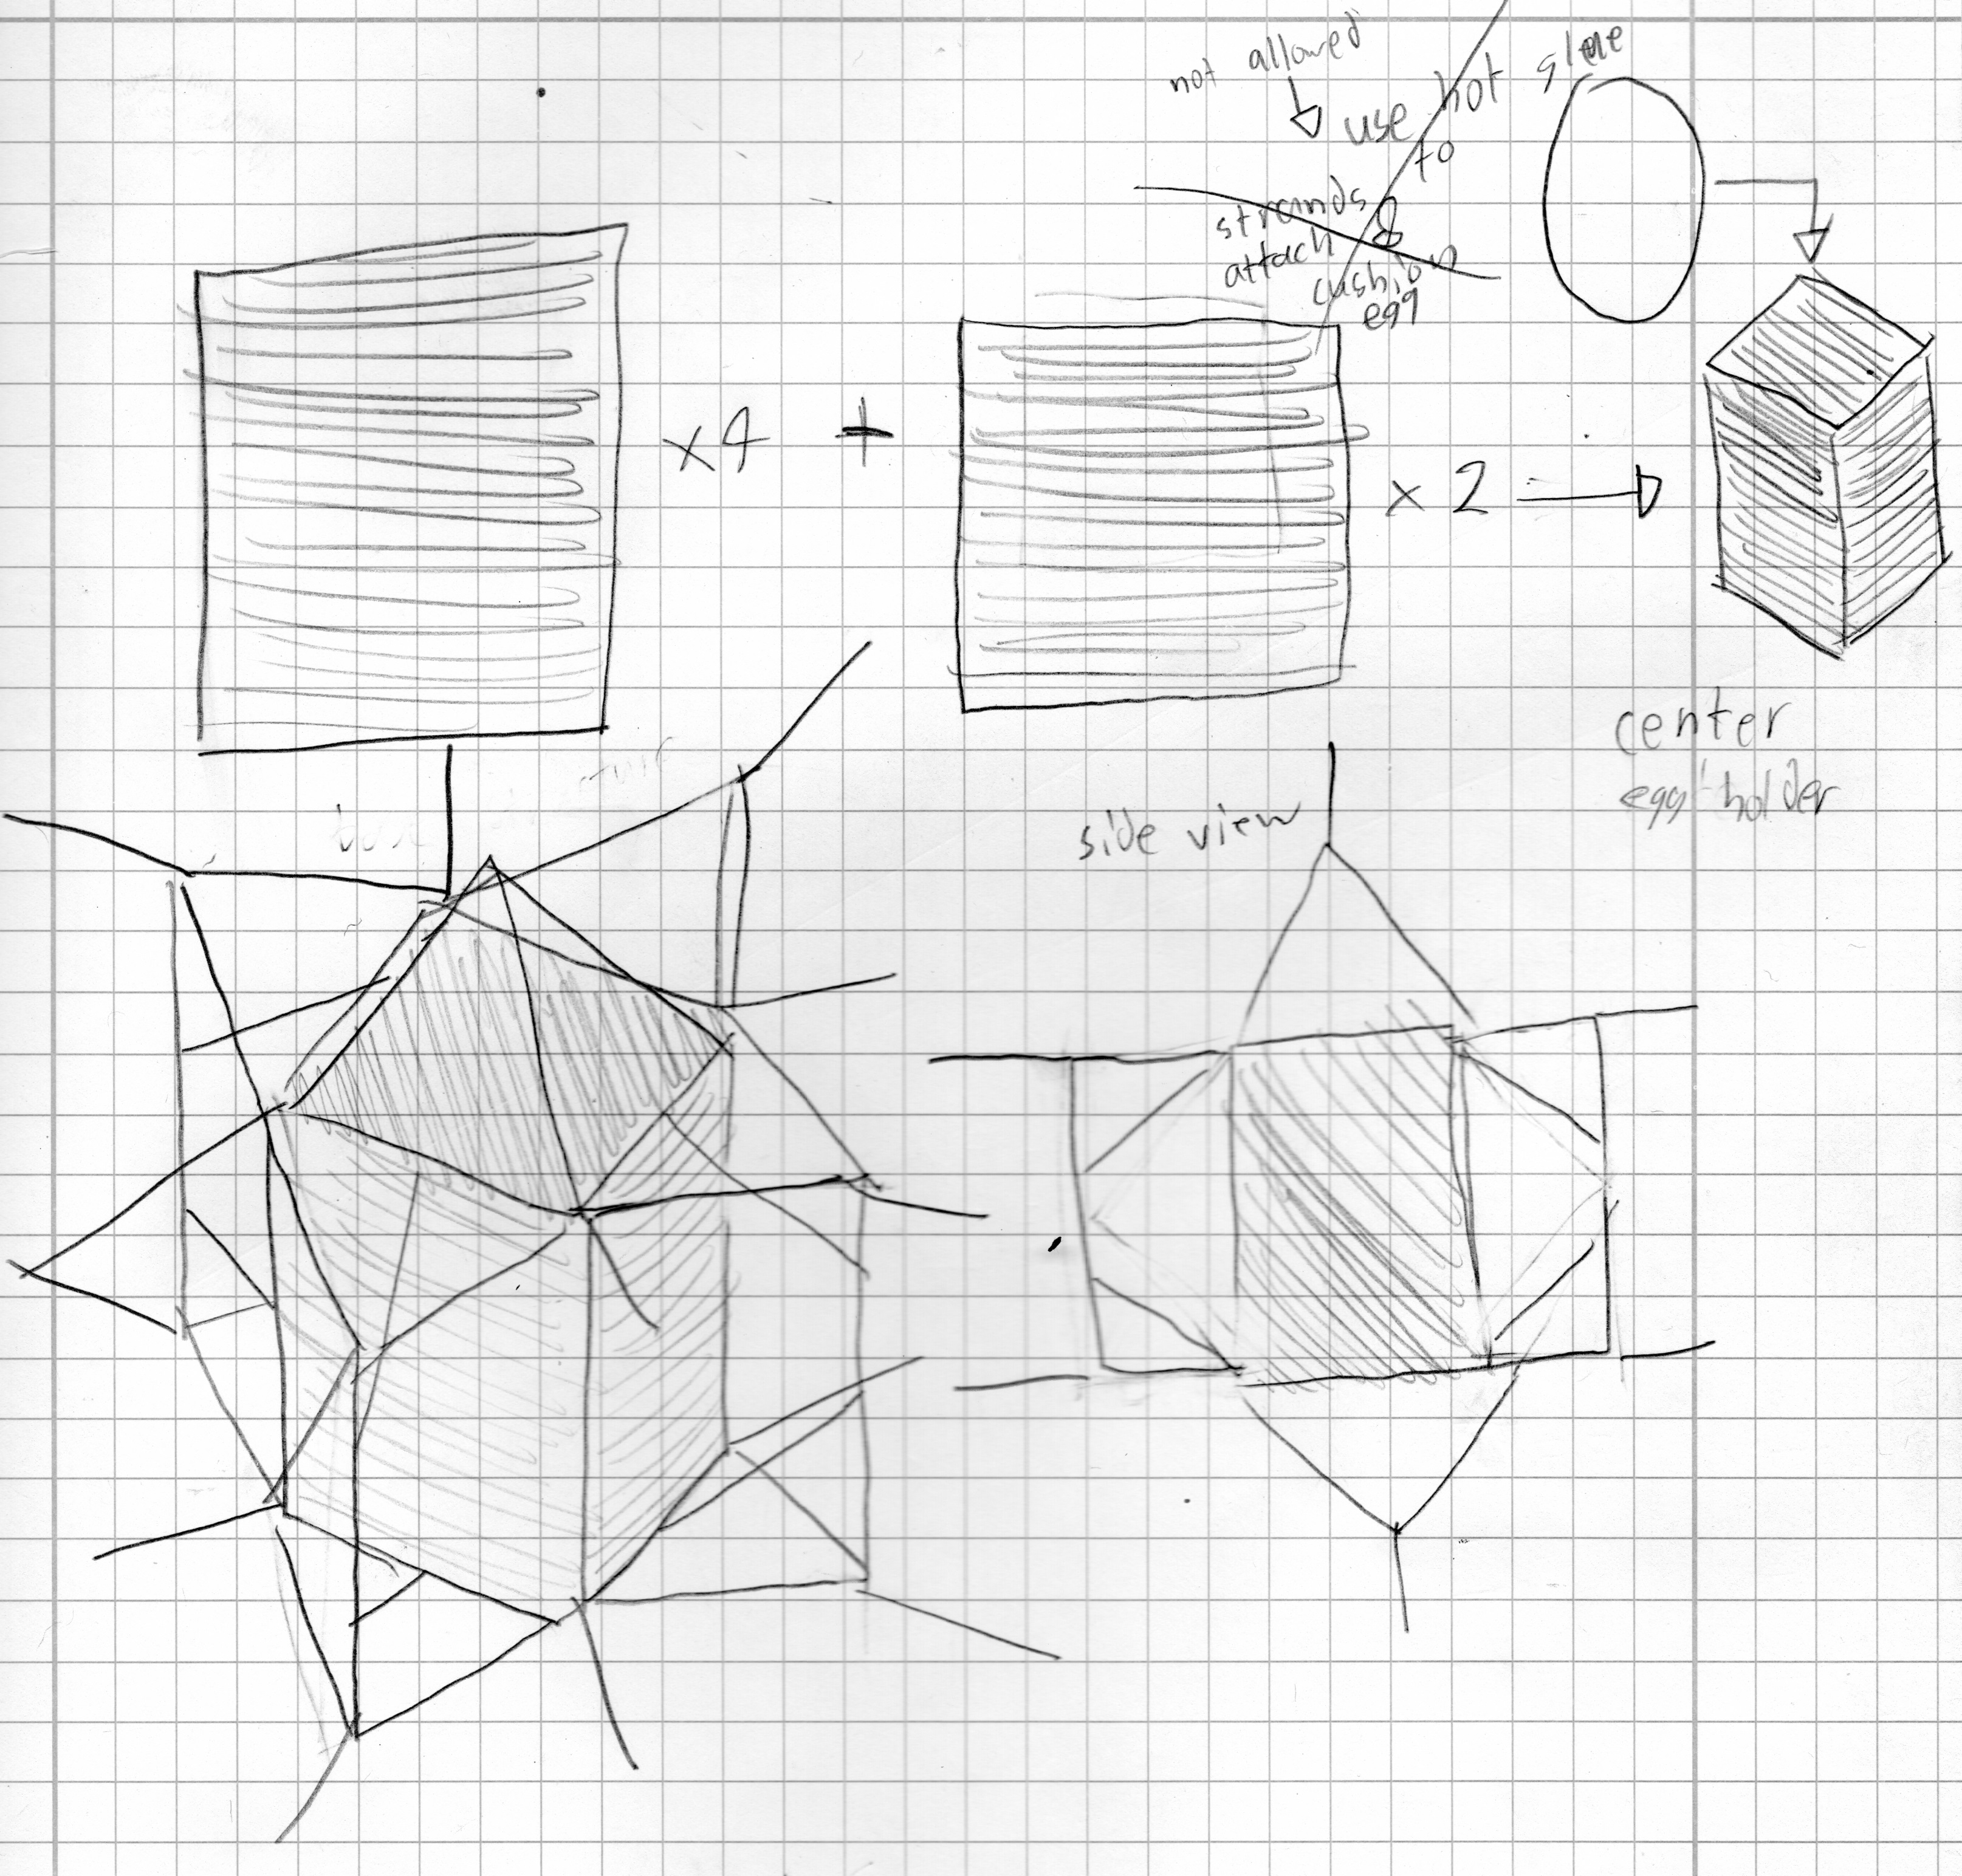 not allowed
use hot glue
to
strands &
attach
cushion
egg
x4 +
x 2
center
egg holder
side view